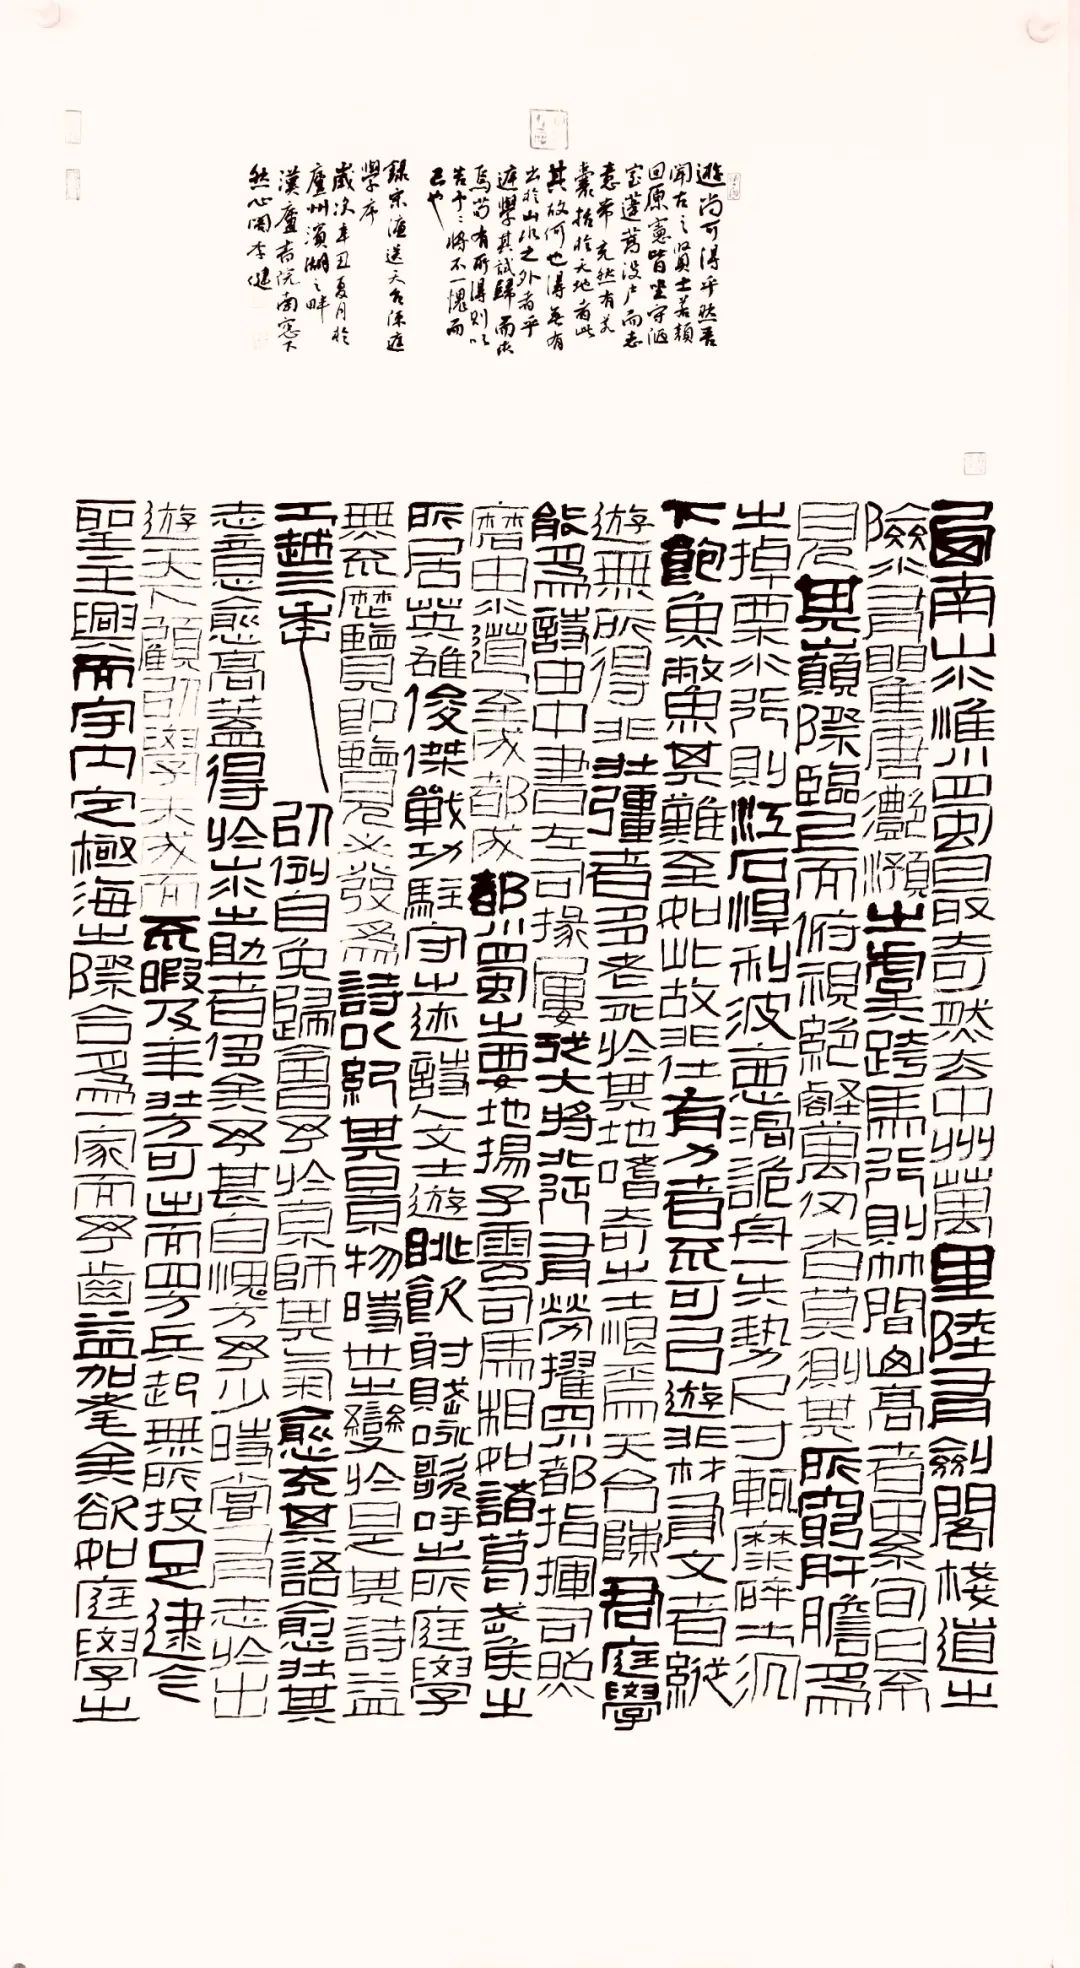 西南山水惟川蜀最奇然去中州萬里陸有劍閣棧道之
險水有瞿唐灩澦之虞跨馬行則竹間山高者累旬日不
見其巔際臨上而俯視絕壑萬仞杳莫測其所窮肝膽為
之掉栗水行則江石悍利波惡渦詭舟一失勢尺寸輒糜碎土沉
下飽魚鱉其難至如此故非仕有力者不可以遊非材有文者縱
遊無所得非壯彊者多老死於其地嗜奇之士恨焉天台陳君庭學
能為詩由中書左司掾屢從大將北征有勞擢四川都指揮司照
磨由水道至成都成都川蜀之要地揚子雲司馬相如諸葛武侯之
所居英雄俊傑戰功駐守之迹詩人文士遊眺飲射賦咏歌呼之所庭學
無不歷覽既覽必發為詩以紀其景物時世之變於是其詩益
工越三年以例自免歸會予於京師其氣愈充其語愈壯其
志意愈高蓋得於山水之助者侈矣予甚自愧方予少時嘗有志於出
遊天下顧以學未成而不暇及年壯方可出而四方兵起無所投足逮今
聖主興而宇內定極海之際合為一家而予齒益加耄矣欲如庭學之
遊尚可得乎然吾
聞古之賢士若顏
回原憲皆坐守陋
室蓬蒿沒戶而志
意常充然有若
囊括於天地者此
其故何也得無有
出於山水之外者乎
庭學其試歸而求
焉苟有所得則以
告予予將不一愧而
已也
錄宋濂送天台陳庭
學序
歲次辛丑夏月於
廬州濱湖之畔
漢廬書院南窗下
然心閣李健